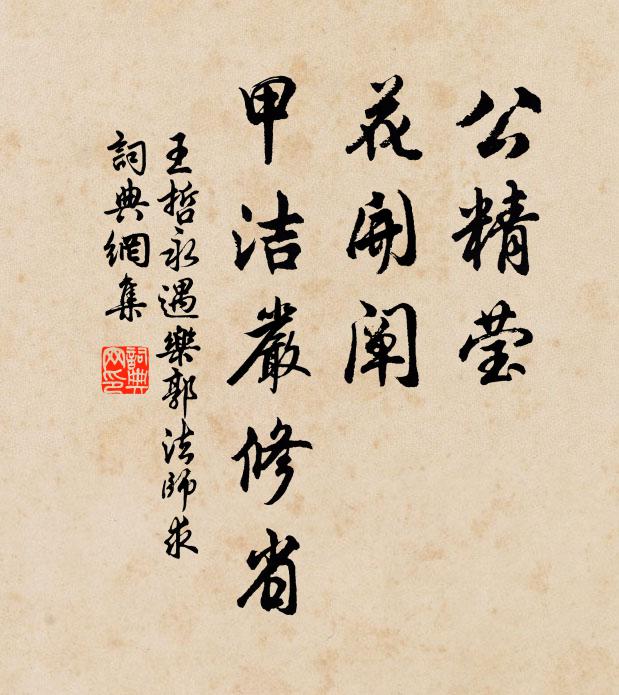 公精莹
花開闡
甲洁嚴修省
王哲永遇樂郭法師求
詞典網集
詞典網印